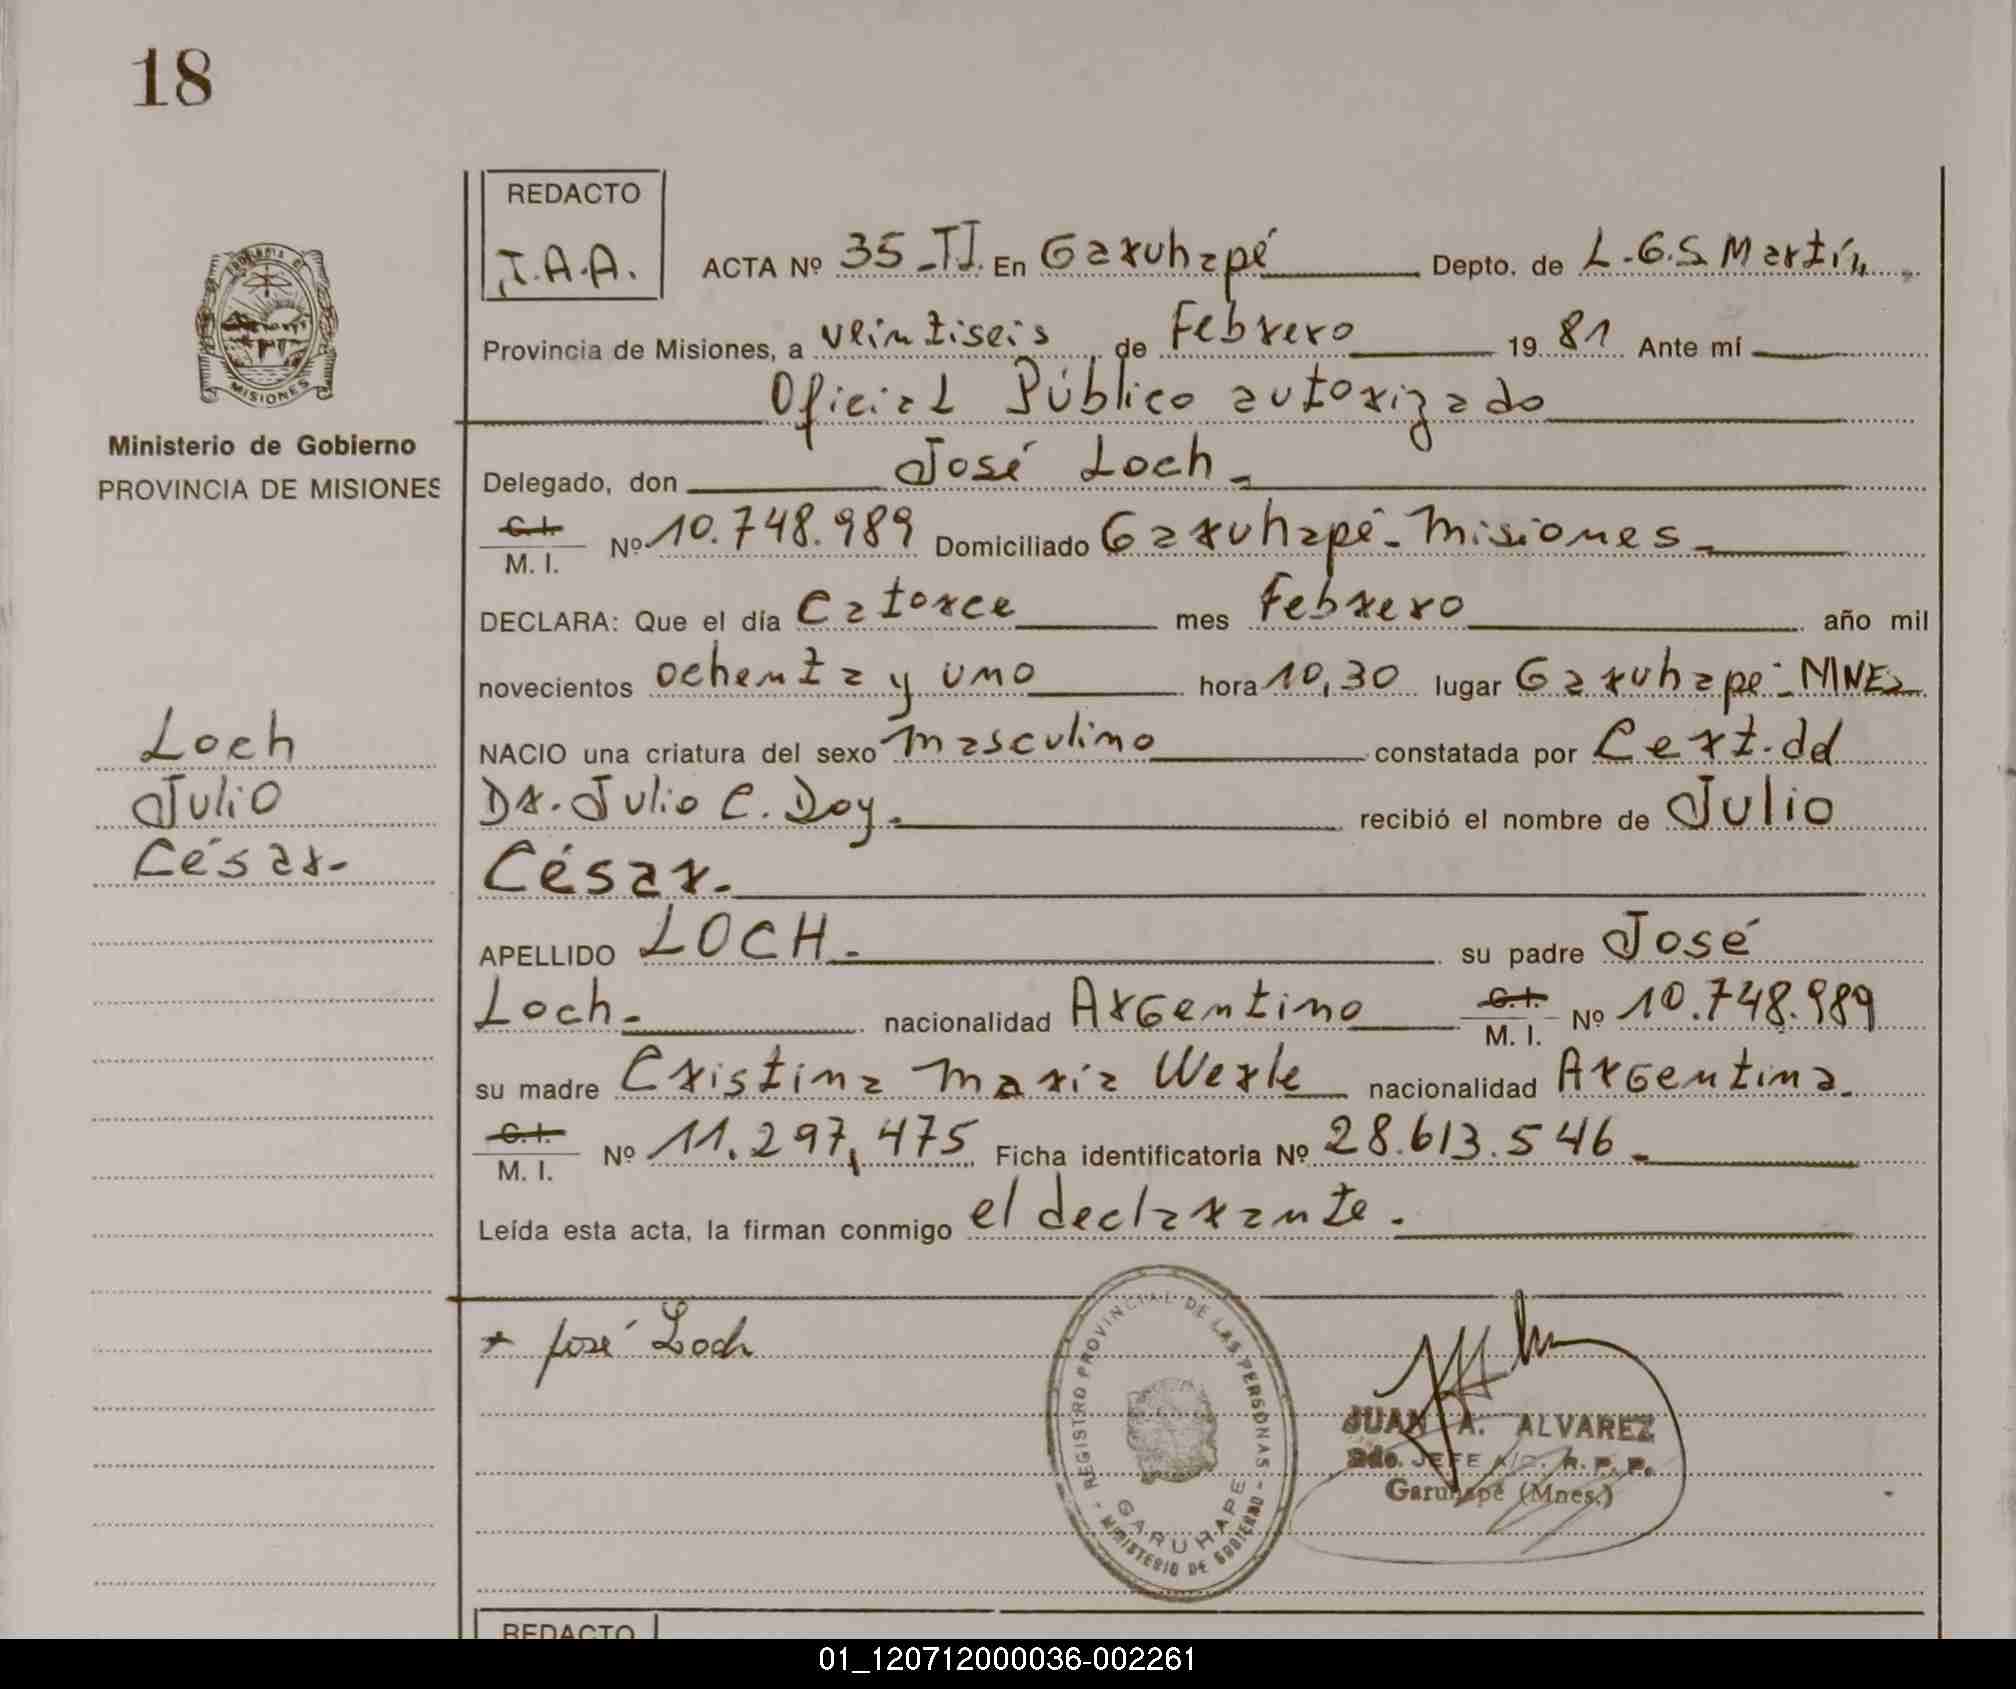 18
REDACTO
J.A.A.
ACTA Nº 35-TI. En Garuhapé Depto. de L.G.S. Martín
Provincia de Misiones, a veintiseis de Febrero 19 81 Ante mí
Oficial Público autorizado
Ministerio de Gobierno
PROVINCIA DE MISIONES
MISIONES
Delegado, don José Loch.
C.I.
M. I. Nº 10.748.989 Domiciliado Garuhapé - Misiones
DECLARA: Que el día Catorce mes Febrero año mil
novecientos ochenta y uno hora 10,30 lugar Garuhapé - MNES
NACIO una criatura del sexo masculino constatada por Cert. dd
Dr. Julio C. Doy. recibió el nombre de Julio
César.
Loch
Julio
César.
APELLIDO LOCH. su padre José
Loch. nacionalidad Argentino C.I.
M. I. Nº 10.748.989
su madre Cristina María Werle nacionalidad Argentina
C.I.
M. I. Nº 11.297,475 Ficha identificatoria Nº 28.613.546
Leída esta acta, la firman conmigo el declarante.
+ José Loch
REGISTRO PROVINCIAL DE LAS PERSONAS
GARUHAPE
MINISTERIO DE GOBIERNO
JUAN A. ALVAREZ
2do. JEFE A/C. R. P. P.
Garuhapé (Mnes.)
REDACTO
01_120712000036-002261